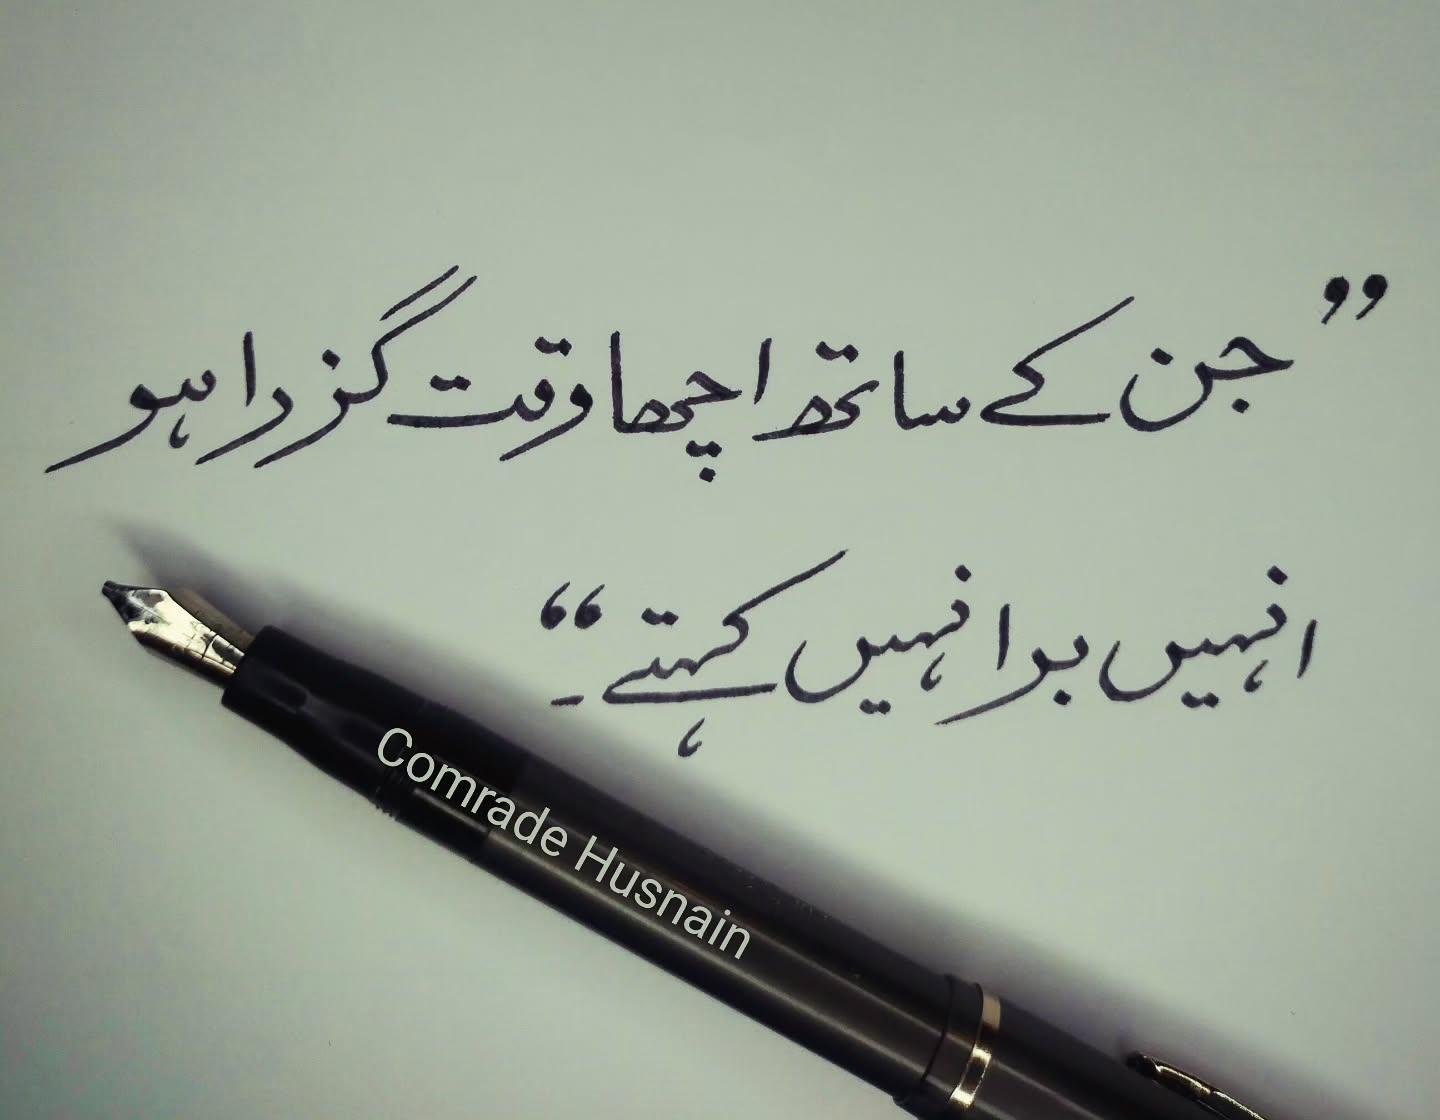 ”جن کے ساتھ اچھا وقت گزرا ہو
انہیں برا نہیں کہتے۔“
Comrade Husnain